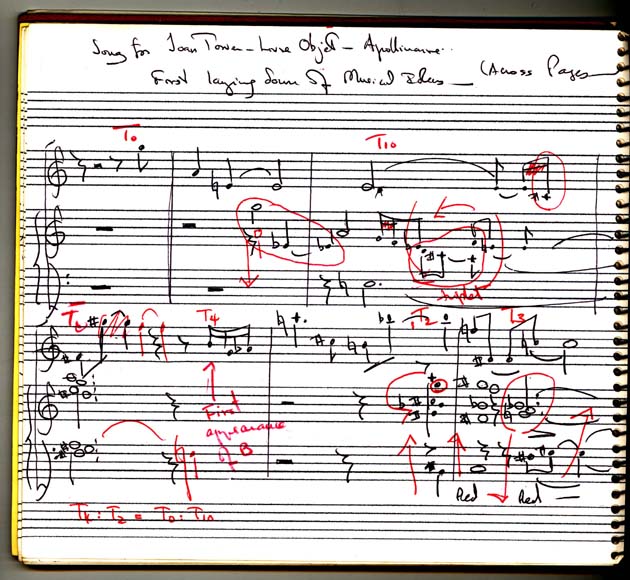 Song for Joan Tower - Objet - Apollinaire..
First laying down of Musical Ideas (Across Pages
T0
T10
T4
T2
T3
First
appearance
of B
Red
Red
T4 : T2 = T0 : T10